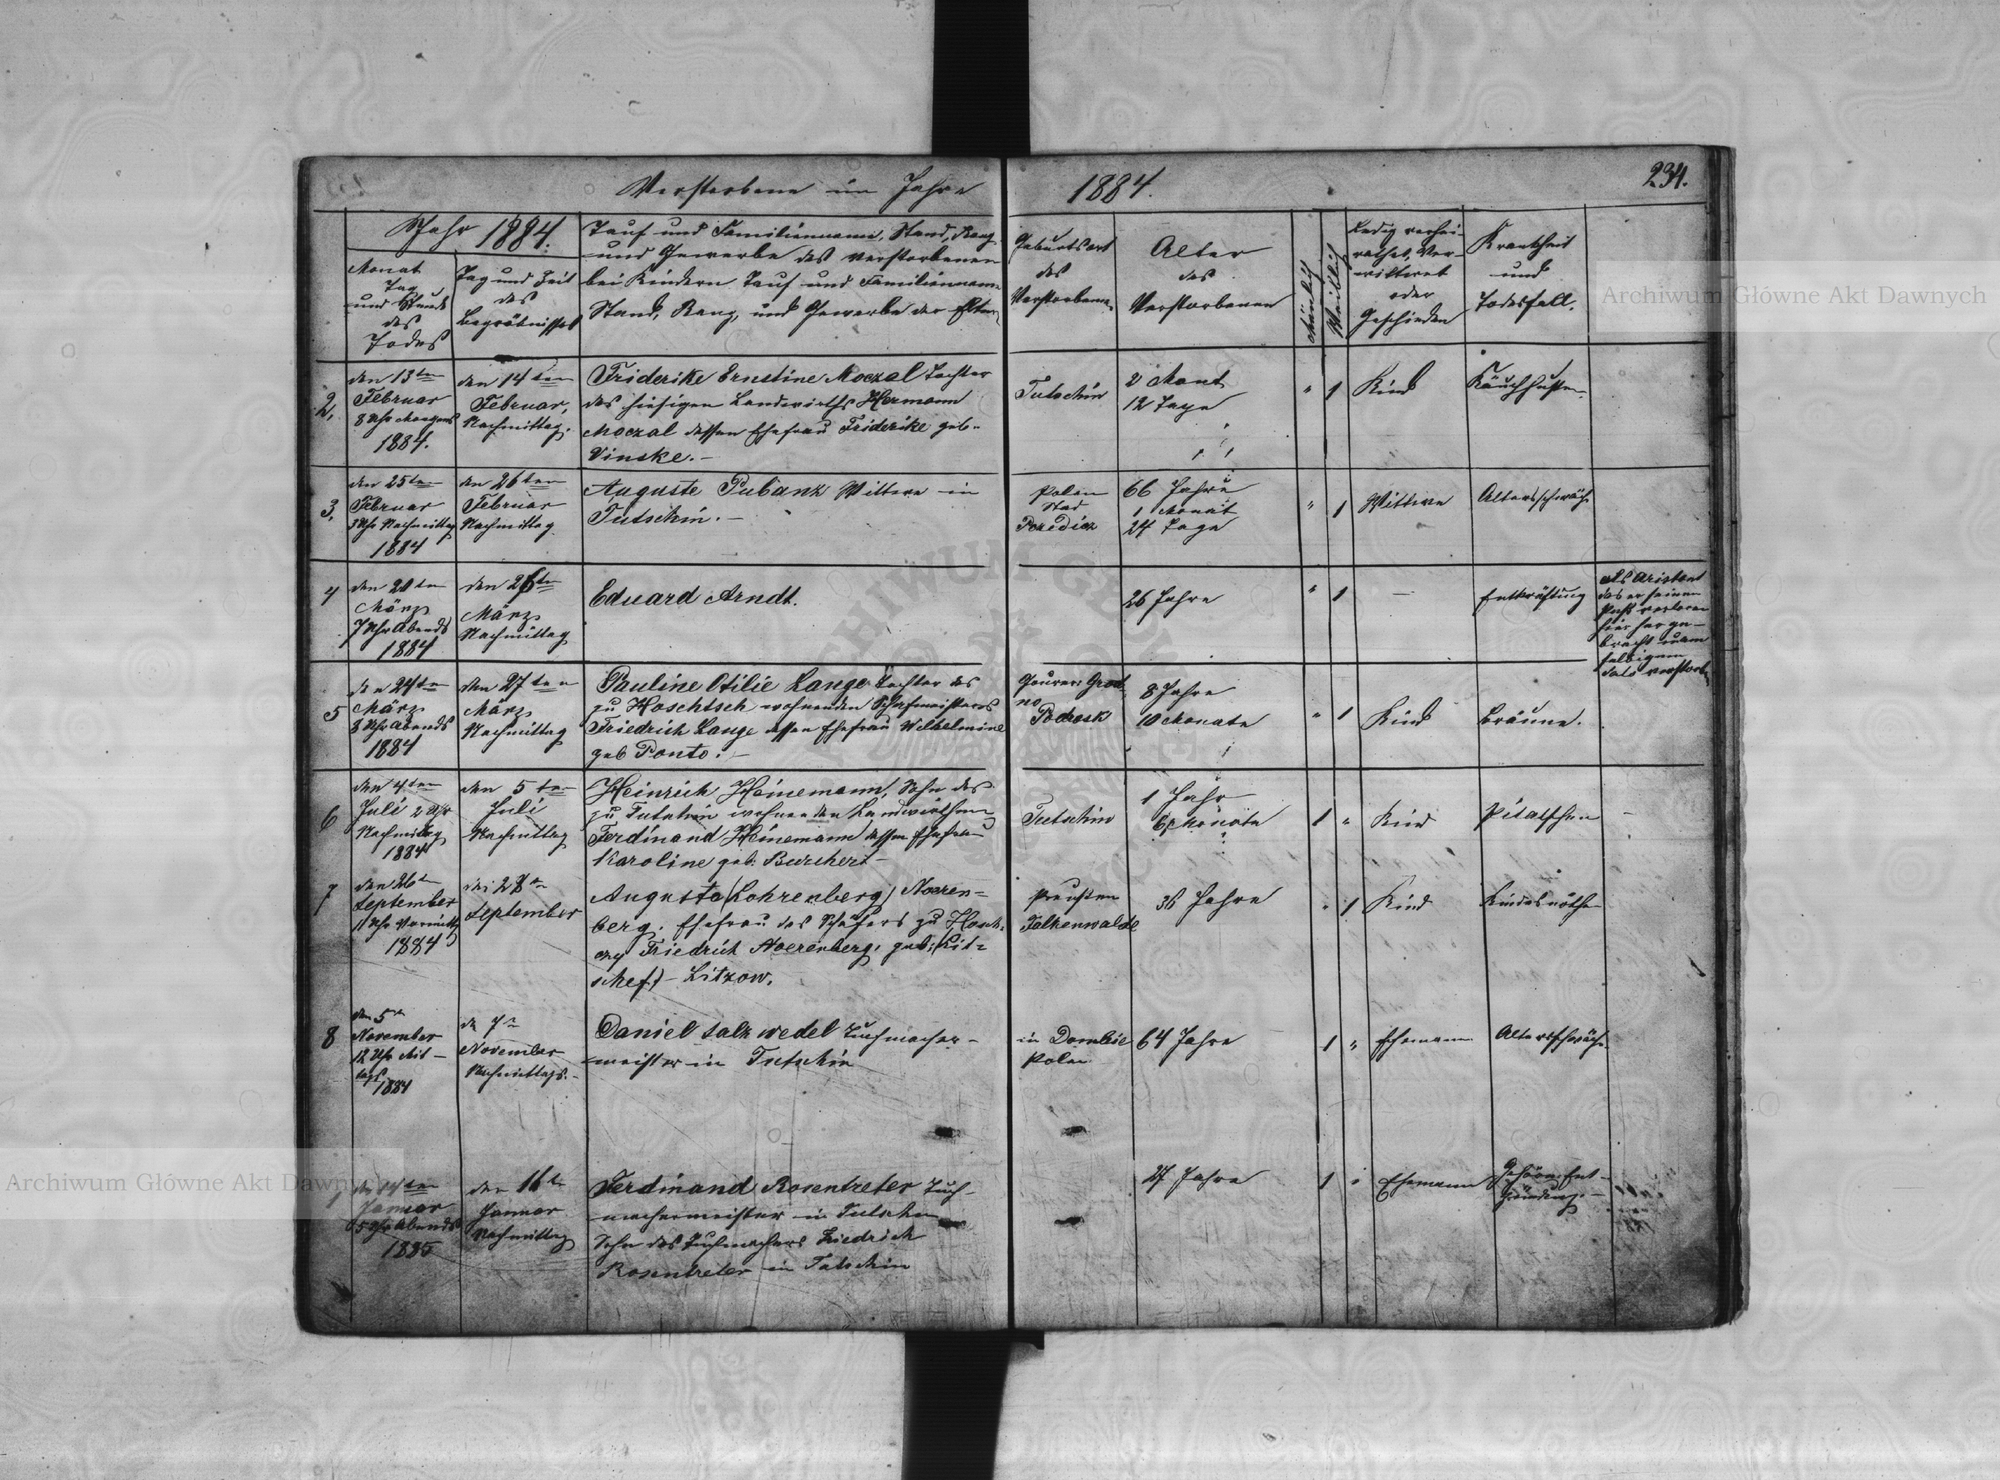 Verstorbene im Jahre 1884.
234.
Jahr 1884.
Monat
Tag
und Stunde
des
Todes
Tag und Zeit
des
Begräbnisses
Tauf und Familienname, Stand, Rang
und Gewerbe des Verstorbenen
bei Kindern Tauf und Familienname
Stand, Rang, und Gewerbe der Eltern
Geburtsort
des
Verstorbenen
Alter
des
Verstorbenen
Männlich
Weiblich
Ledig verhei-
rathet, Ver-
wittwet
oder
Geschieden
Krankheit
und
Todesfall.
2.
den 13ten
Februar
8 Uhr Morgens
1884.
den 14ten
Februar,
Nachmittag.
Friderike Ernstine Moczal Tochter
des hiesigen Landwirths Hermann
Moczal dessen Ehefrau Friderike geb.
Vinske.-
Tutschin
2 Monat
12 Tage
" 1
Kind
3.
den 25ten
Februar
3 Uhr Nachmittag
1884
den 26ten
Februar
Nachmittag
Auguste Pubanz Wittwe in
Tutschin.-
Polen
Stad
66 Jahre
1 Monat
24 Tage
" 1
Wittwe
Altersschwäche
4
den 20ten
März
7 Uhr Abends
1884
den 26ten
März
Nachmittag
Eduard Arndt.
26 Jahre
" 1
-
Entkräftung
als Aristant
das er seinen
Paß verloren
hier her ge-
bracht
5
den 24ten
März
8 Uhr Abends
1884
den 27ten
März
Nachmittag
Pauline Otilie Lange Tochter des
zu Hoschtsch wohnenden Schafmeisters
Friedrich Lange dessen Ehefrau Wilhelmine
geb Ponto.-
Gouver: Grod
no
Podrosk
8 Jahre
10 Monate
" 1
Kind
Bräune.
6
den 4ten
Juli 2 Uhr
Nachmittag
1884
den 5ten
Juli
Nachmittag
Heinrich Heinemann, Sohn des
zu Tutschin wohnenden Landwirthen
Ferdinand Heinemann dessen Ehefrau
Karoline geb. Buchert-
Tutschin
1 Jahr
6 Monate
1 "
Kind
7
den 26ten
September
1884
den 28ten
September
Augusta (Lohrenberg) Noeren-
berg. Ehefrau des Schäfers zu Hosch-
Friedrich Noerenberg, geb. (Lit-
schef)- Litzow.
Preußen
Falkenwalde
36 Jahre
" 1
Kind
Kindesnöthe
8
den 5ten
November
12 Uhr Mit-
tags
1884
den 7ten
November
Nachmittags.-
Daniel Salzwedel Tuchmacher-
meister in Tutschin
in Dombie
Polen
64 Jahre
1 "
Ehemann
Altersschwäche
den 14ten
Januar
5 Uhr Abends
1885
den 16ten
Januar
Nachmittag
Ferdinand Rosentreter Tuch-
machermeister in Tutschin
Sohn des Tuchmachers Friedrich
Rosentreter in Tutschin
27 Jahre
1 "
Ehemann
Gehirn Ent-
zündung.-
Archiwum Główne Akt Dawnych
Archiwum Główne Akt Dawnych